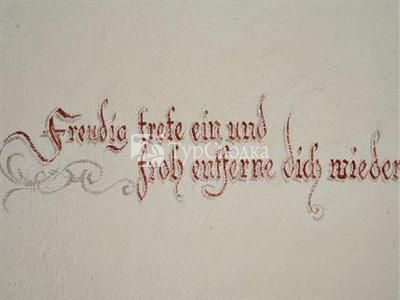 Freudig trete ein und
froh entferne dich wieder
ТурСводка